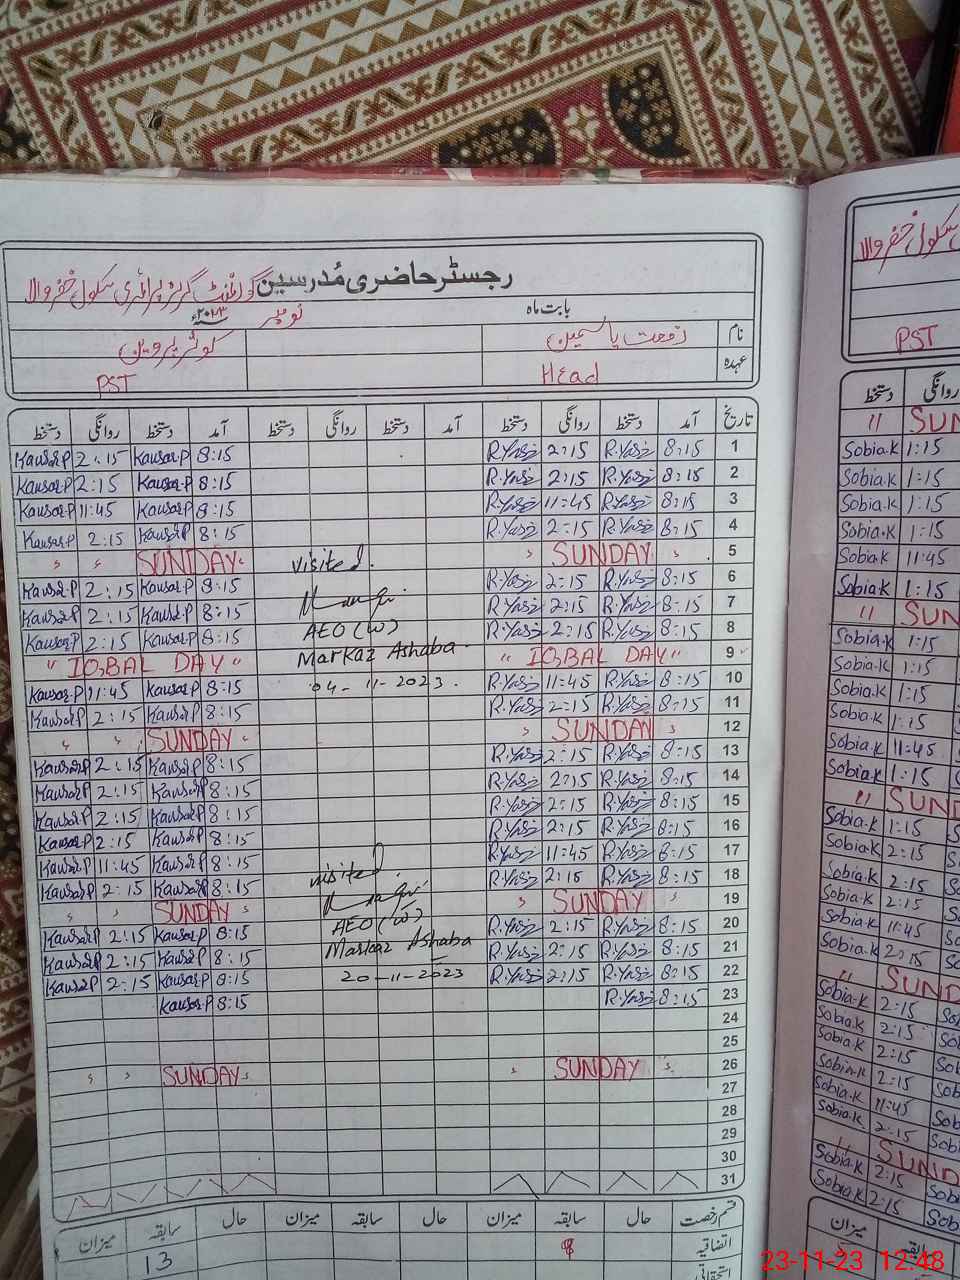 رجسٹر حاضری مُدرسین گورنمنٹ گرلز پرائمری سکول خضر والا
بابت ماہ نومبر ۲۰۲۳ء
نام کوثر پروین
عہدہ Head PST
تاریخ آمد دستخط روانگی دستخط آمد دستخط روانگی دستخط آمد دستخط روانگی دستخط
1 8:15 R.Yas 2:15 R.Yas 8:15 Kausar.P 2:15 Kausar.P
2 8:15 R.Yas 2:15 R.Yas 8:15 Kausar.P 2:15 Kausar.P
3 8:15 R.Yas 11:45 R.Yas 8:15 Kausar.P 11:45 Kausar.P
4 8:15 R.Yas 2:15 R.Yas 8:15 Kausar.P 2:15 Kausar.P
5 SUNDAY visited. SUNDAY
6 8:15 R.Yas 2:15 R.Yas 8:15 Kausar.P 2:15 Kausar.P
7 8:15 R.Yas 2:15 R.Yas 8:15 Kausar.P 2:15 Kausar.P
8 8:15 R.Yas 2:15 R.Yas AEO (W) 8:15 Kausar.P 2:15 Kausar.P
9 " IQBAL DAY " Markaz Ashaba " IQBAL DAY "
10 8:15 R.Yas 11:45 R.Yas 04-11-2023. 8:15 Kausar.P 11:45 Kausar.P
11 8:15 R.Yas 2:15 R.Yas 8:15 Kausar.P 2:15 Kausar.P
12 SUNDAY SUNDAY
13 8:15 R.Yas 2:15 R.Yas 8:15 Kausar.P 2:15 Kausar.P
14 8:15 R.Yas 2:15 R.Yas 8:15 Kausar.P 2:15 Kausar.P
15 8:15 R.Yas 2:15 R.Yas 8:15 Kausar.P 2:15 Kausar.P
16 8:15 R.Yas 2:15 R.Yas 8:15 Kausar.P 2:15 Kausar.P
17 8:15 R.Yas 11:45 R.Yas 8:15 Kausar.P 11:45 Kausar.P
18 8:15 R.Yas 2:15 R.Yas visited. 8:15 Kausar.P 2:15 Kausar.P
19 SUNDAY SUNDAY
20 8:15 R.Yas 2:15 R.Yas AEO (W) 8:15 Kausar.P 2:15 Kausar.P
21 8:15 R.Yas 2:15 R.Yas Markaz Ashaba 8:15 Kausar.P 2:15 Kausar.P
22 8:15 R.Yas 2:15 R.Yas 20-11-2023 8:15 Kausar.P 2:15 Kausar.P
23 8:15 R.Yas 8:15 Kausar.P
24
25
26 SUNDAY SUNDAY
27
28
29
30
31
قسم رخصت حال سابقہ میزان حال سابقہ میزان حال سابقہ میزان
اتفاقیہ 13
استحقاقی
سکول خضر والا
PST
روانگی دستخط
SUN
1:15 Sobia.K
1:15 Sobia.K
1:15 Sobia.K
1:15 Sobia.K
11:45 Sobia.K
1:15 Sobia.K
SUN
1:15 Sobia.K
1:15 Sobia.K
1:15 Sobia.K
1:15 Sobia.K
11:45 Sobia.K
1:15 Sobia.K
SUND
1:15 Sobia.K
2:15 Sobia.K
2:15 Sobia.K
2:15 Sobia.K
11:45 Sobia.K
2:15 Sobia.K
SUND
2:15 Sobia.K
2:15 Sobia.K
2:15 Sobia.K
2:15 Sobia.K
11:45 Sobia.K
2:15 Sobia.K
SUND
2:15 Sobia.K
2:15 Sobia.K
سابقہ میزان
23-11-23 12:48